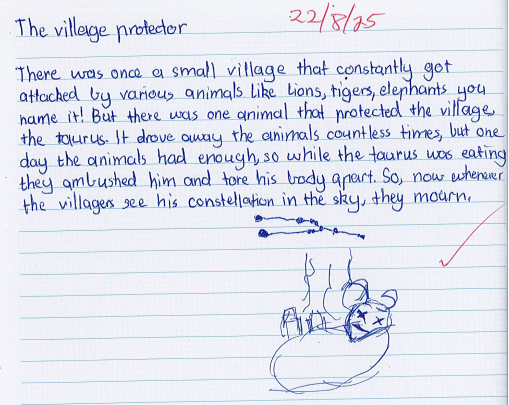 The villeage protector
22/8/25
There was once a small village that constantly got
attacked by various animals like lions, tigers, elephants you
name it! But there was one animal that protected the village,
the taurus. It drove away the animals countless times, but one
day the animals had enough, so while the taurus was eating
they ambushed him and tore his body apart. So, now whenever
the villagers see his constellation in the sky, they mourn.